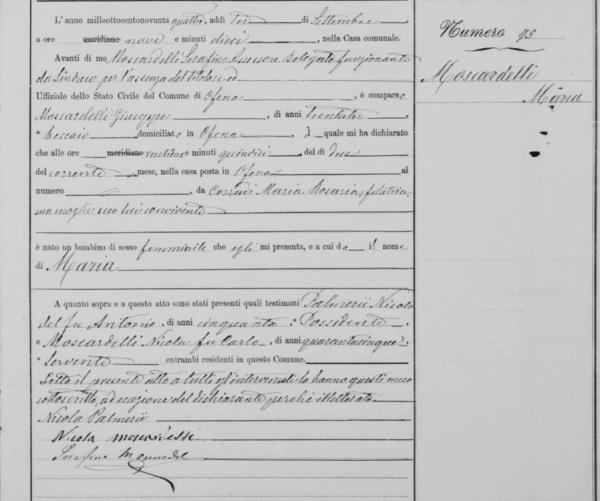 L'anno milleottocentonovanta quattro, addì tre di Settembre
a ore meridiane nove e minuti dieci, nella Casa comunale.
Avanti di me Moscardelli Serafino Assessore Delegato funzionante
da Sindaco per l'assenza del titolare ed
Uffiziale dello Stato Civile del Comune di Ofena, è comparso
Moscardelli Giuseppe, di anni trentatre
domiciliato in Ofena, il quale mi ha dichiarato
che alle ore meridiane e minuti quindici, del dì due
del corrente mese, nella casa posta in Ofena al
numero , da Corradi Maria Rosaria, filatrice,
sua moglie seco lui convivente
è nato un bambino di sesso femminile che egli mi presenta, e a cui dà il nome
di Maria
A quanto sopra e a questo atto sono stati presenti quali testimoni Palmerii Nicola
del fu Antonio, di anni cinquanta Possidente
e Moscardelli Nicola fu Carlo, di anni quarantacinque
Servente entrambi residenti in questo Comune.
Letto il presente atto a tutti gl'intervenuti lo hanno questi meco
sottoscritto, ad eccezione del dichiarante perchè illetterato
Nicola Palmerii
Nicola moscardelli
Serafino
Numero 95
Moscardelli
Maria